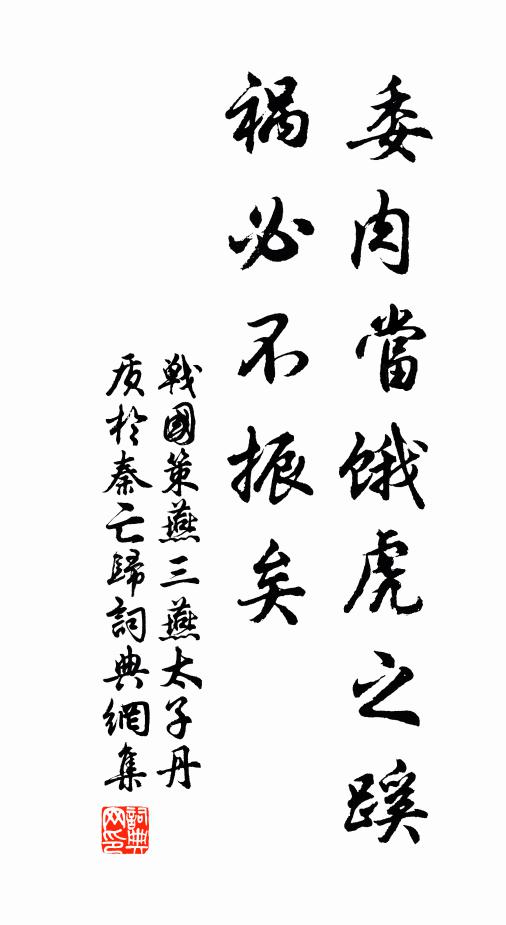 委肉當饿虎之蹊
祸必不振矣
戰國策燕三燕太子丹
质於秦亡歸詞典網集
詞典
网印